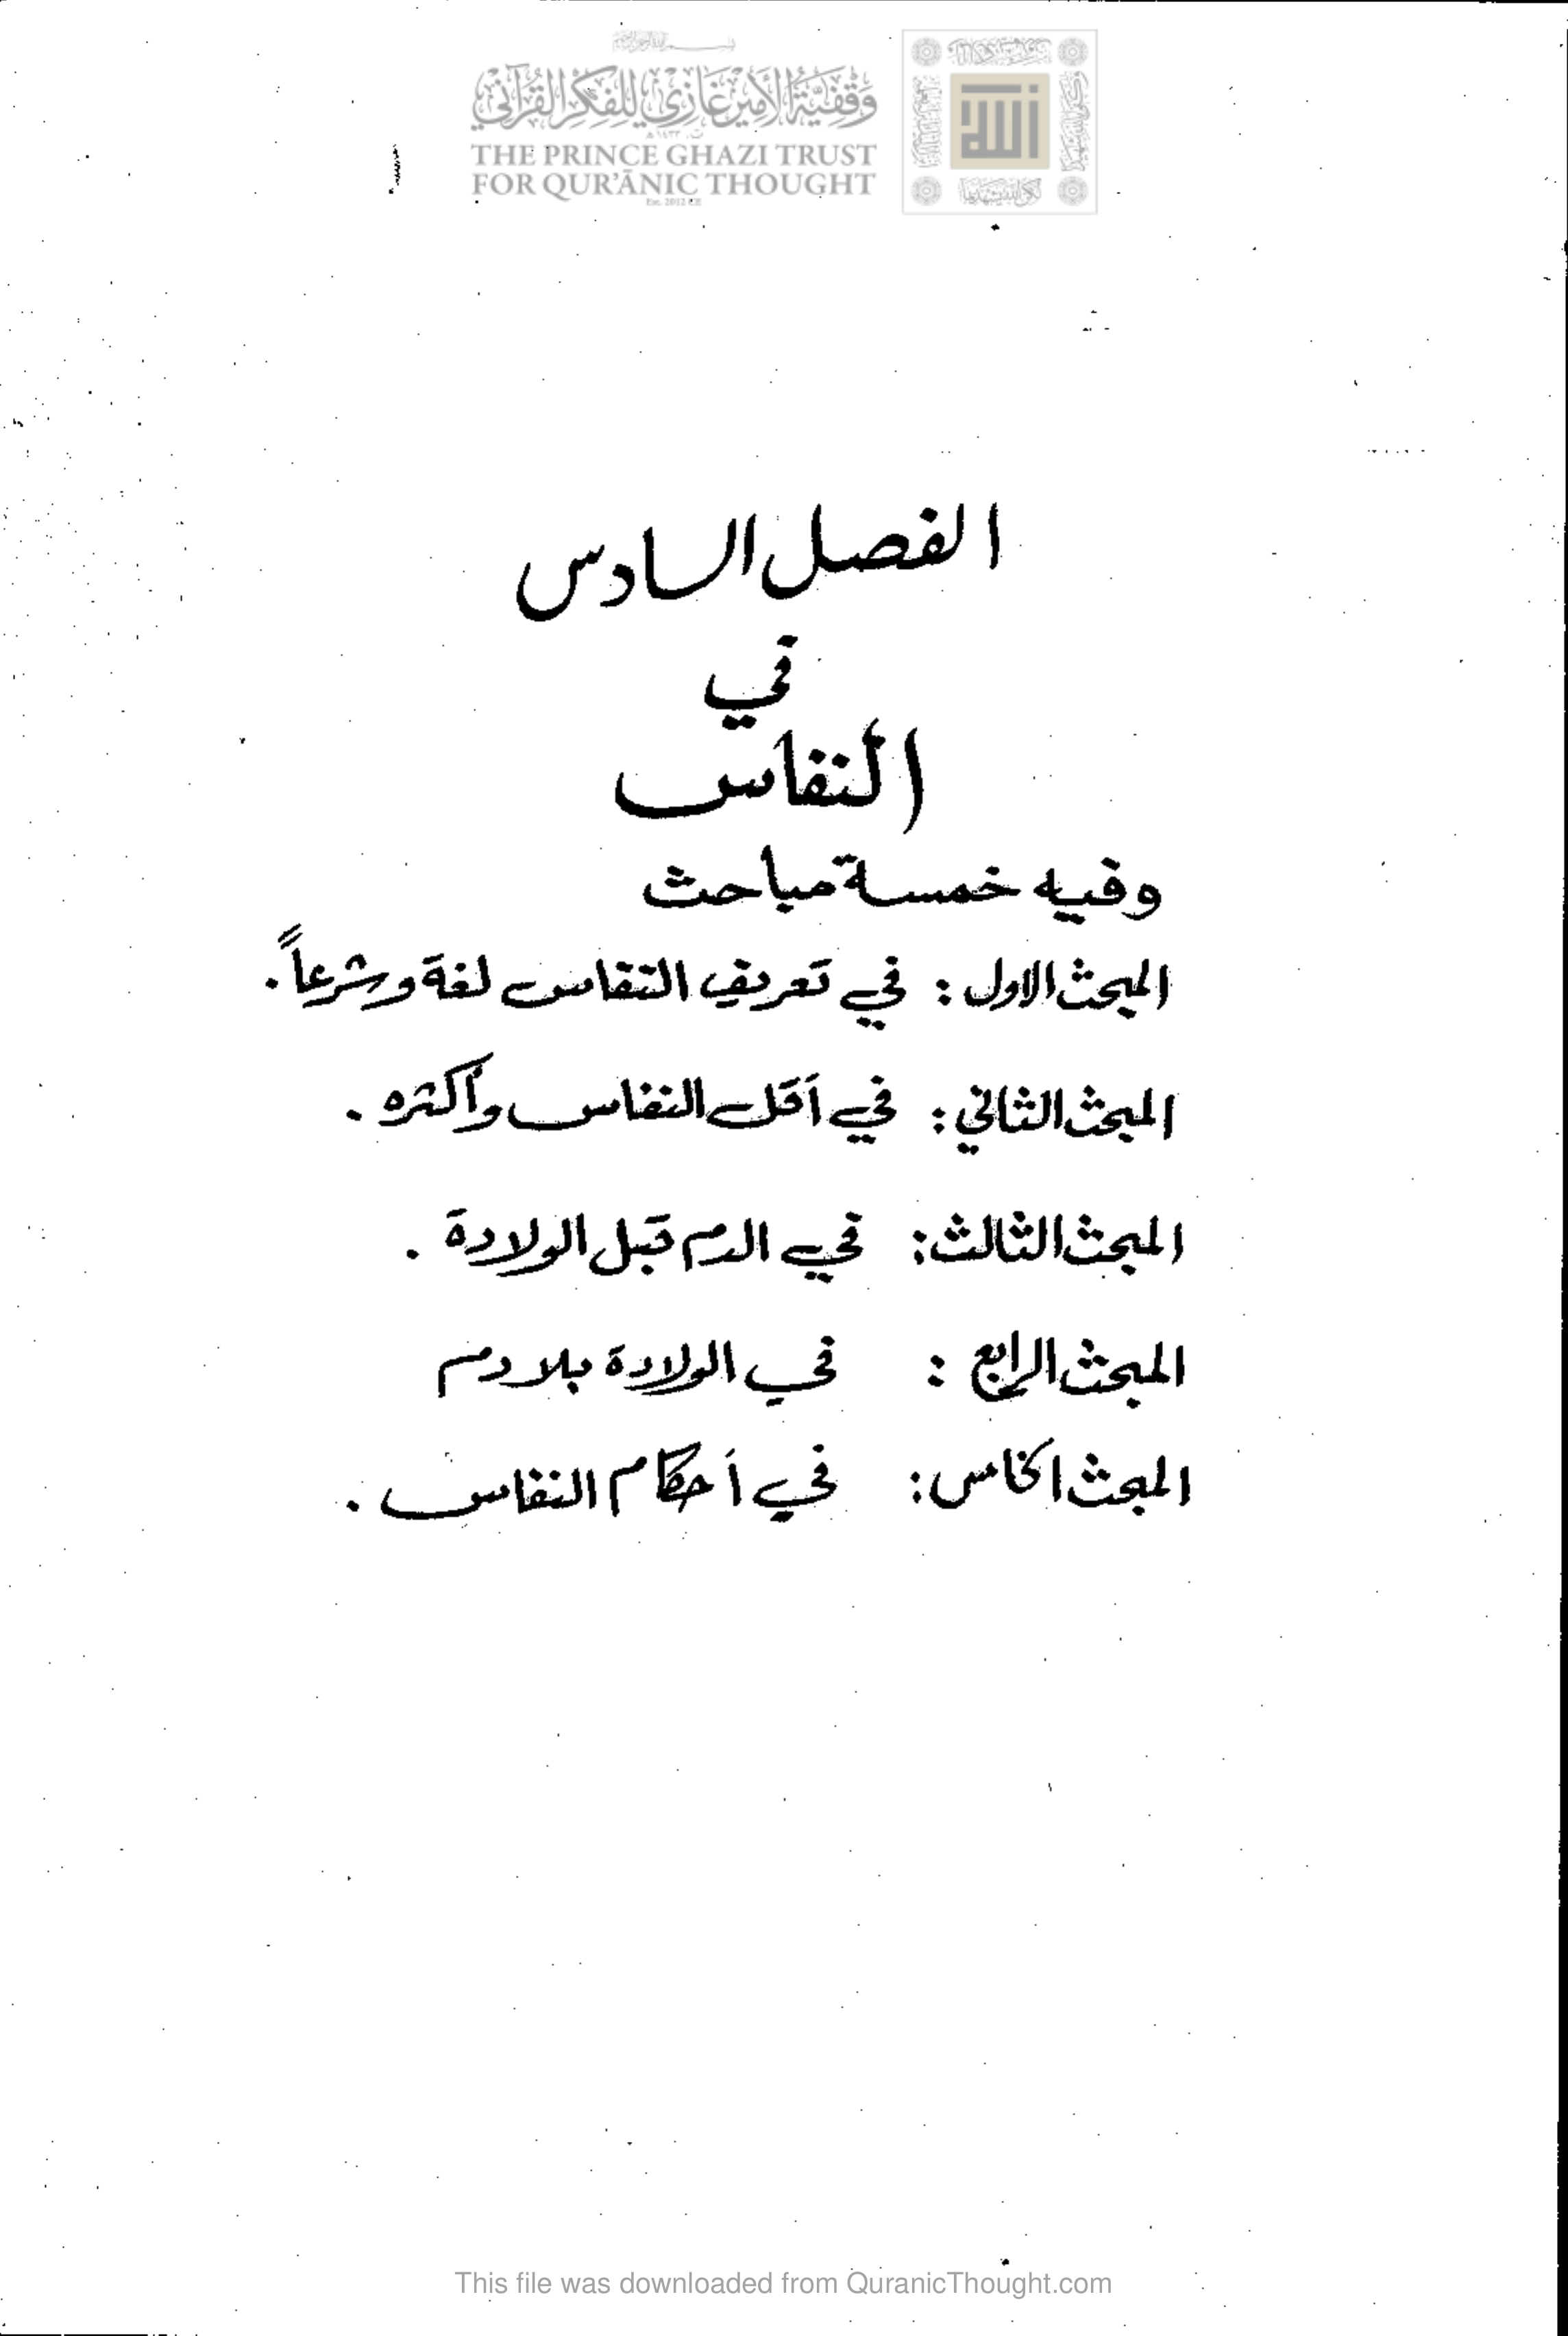 وقفية الأمير غازي للفكر القرآني
THE PRINCE GHAZI TRUST
FOR QUR'ĀNIC THOUGHT
Est. 2012 CE
الفصل السادس
في
النفاس
وفيه خمسة مباحث
المبحث الاول : في تعريف النفاس لغة وشرعاً .
المبحث الثاني : في أقل النفاس وأكثره .
المبحث الثالث : في الدم قبل الولادة .
المبحث الرابع : في الولادة بلا دم
المبحث الخامس : في أحكام النفاس .
This file was downloaded from QuranicThought.com